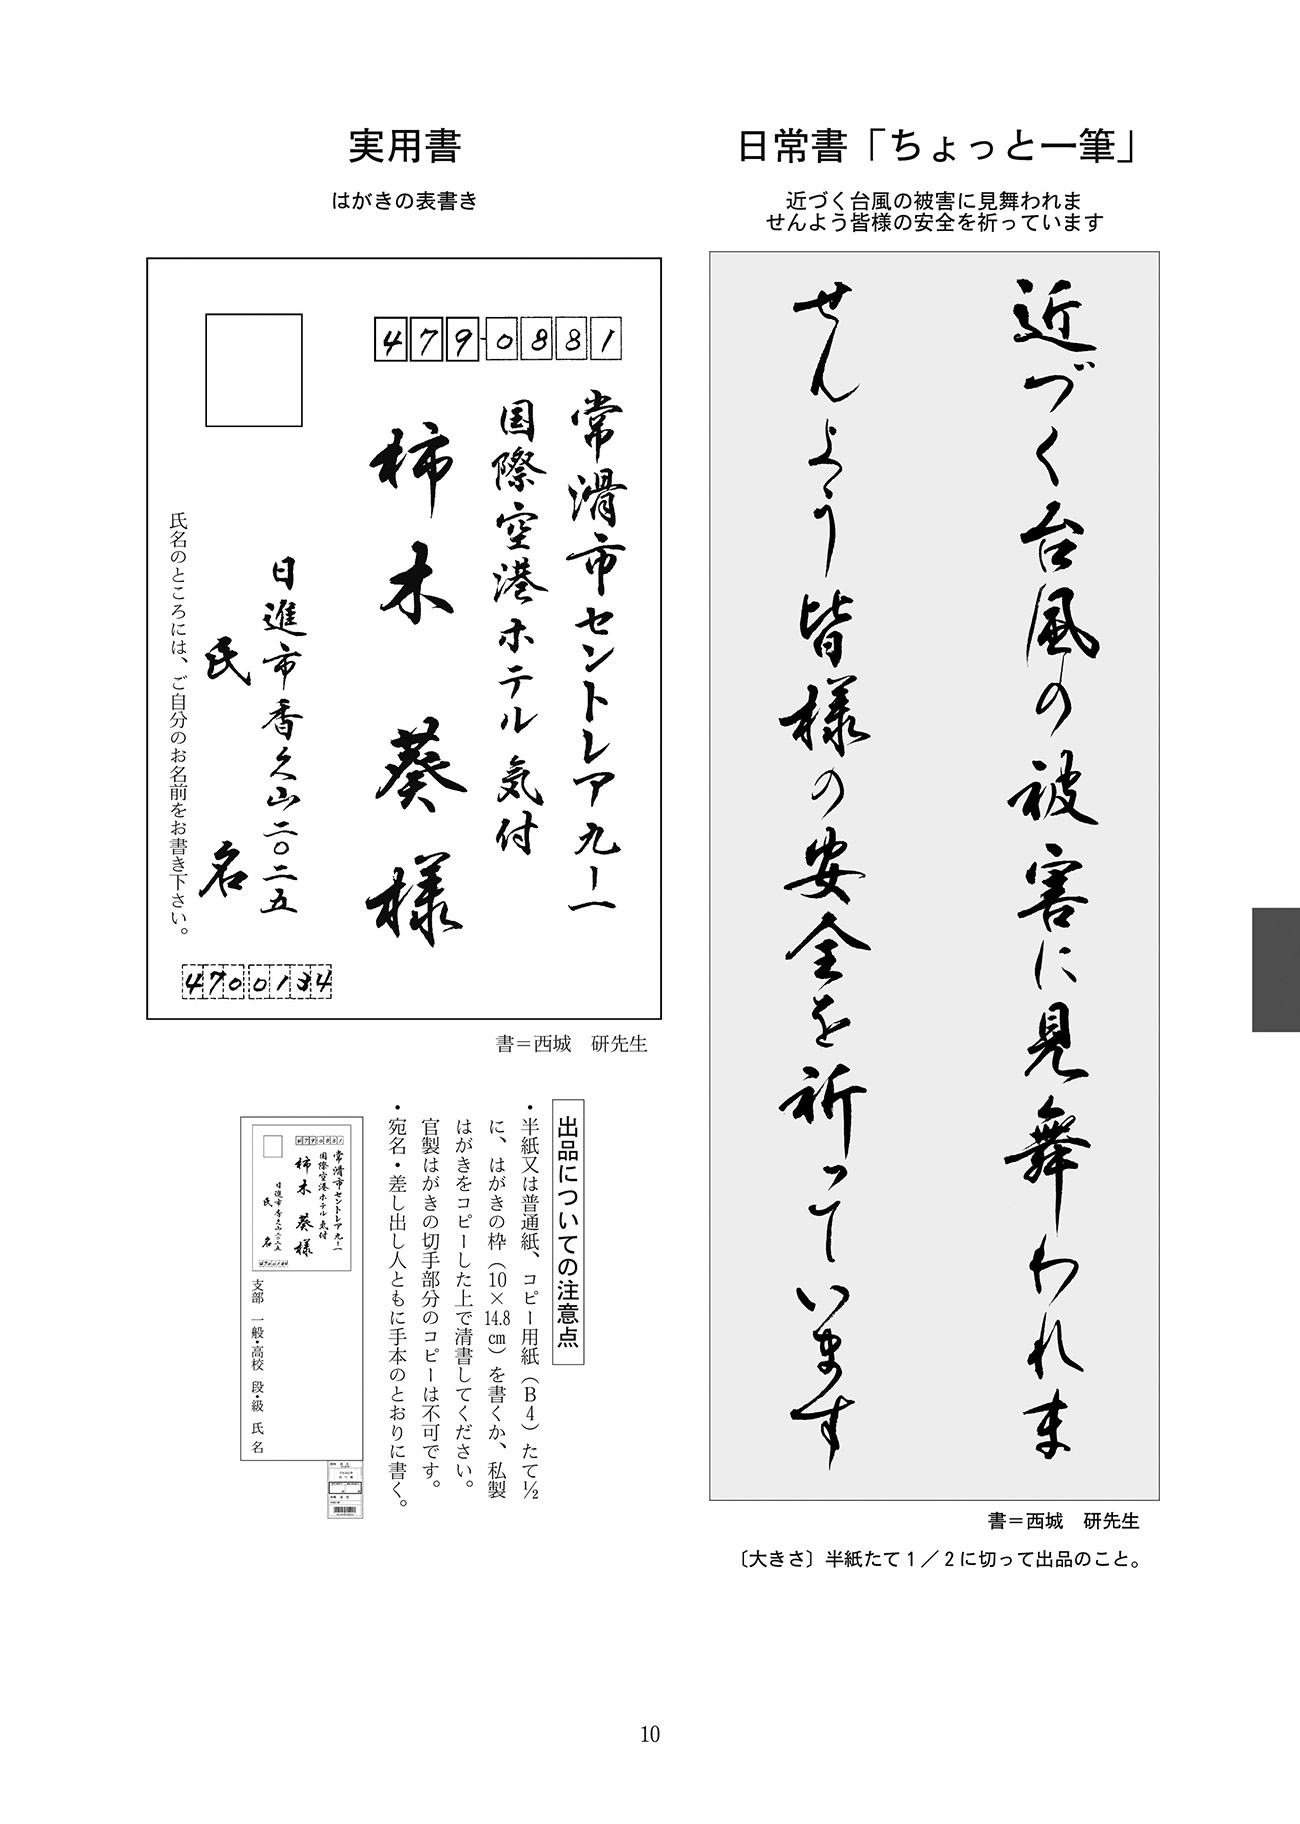 日常書「ちょっと一筆」
近づく台風の被害に見舞われま
せんよう皆様の安全を祈っています
近づく台風の被害に見舞われま
せんよう皆様の安全を祈っています
書＝西城　研先生
〔大きさ〕半紙たて１／２に切って出品のこと。
実用書
はがきの表書き
479-0881
常滑市セントレア九ー一
国際空港ホテル気付
柿木　葵様
日進市香久山二〇二五
氏　名
4700134
氏名のところには、ご自分のお名前をお書き下さい。
書＝西城　研先生
出品についての注意点
・半紙又は普通紙、コピー用紙（Ｂ４）たて½
に、はがきの枠（10×14.8㎝）を書くか、私製
はがきをコピーした上で清書してください。
官製はがきの切手部分のコピーは不可です。
・宛名・差し出し人ともに手本のとおりに書く。
4790881
常滑市セントレア九ー一
国際空港ホテル気付
柿木　葵様
日進市香久山二〇二五
氏　名
4700134
支部　一般・高校　段・級　氏名
10